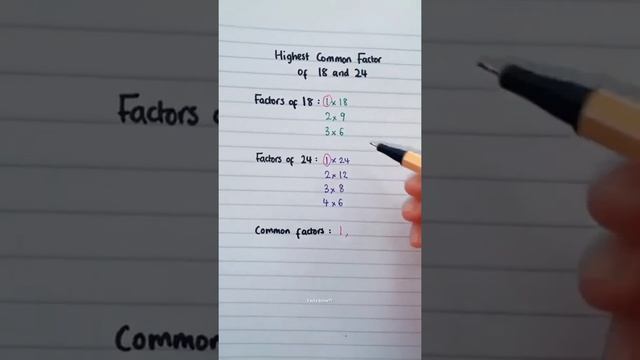 Highest Common Factor
of 18 and 24
Factors of 18 : 1 x 18
2 x 9
3 x 6
Factors of 24 : 1 x 24
2 x 12
3 x 8
4 x 6
Common factors : 1,
Factors
Common